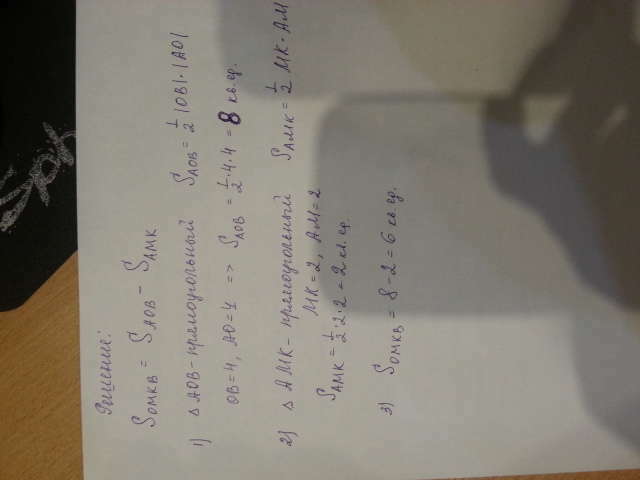 Решение:
S_OMKB = S_AOB - S_AMK
1) △ AOB - прямоугольный S_AOB = 1/2 |OB|·|AO|
OB=4, AO=4 => S_AOB = 1/2·4·4 = 8 кв.ед.
2) △ AMK - прямоугольный S_AMK = 1/2 MK·AM
MK=2, AM=2
S_AMK = 1/2·2·2 = 2 кв.ед.
3) S_OMKB = 8-2=6 кв ед.